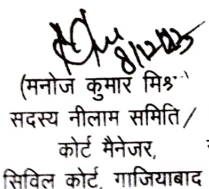 8/12/23
(मनोज कुमार मिश्र)
सदस्य नीलाम समिति/
कोर्ट मैनेजर,
सिविल कोर्ट, गाजियाबाद